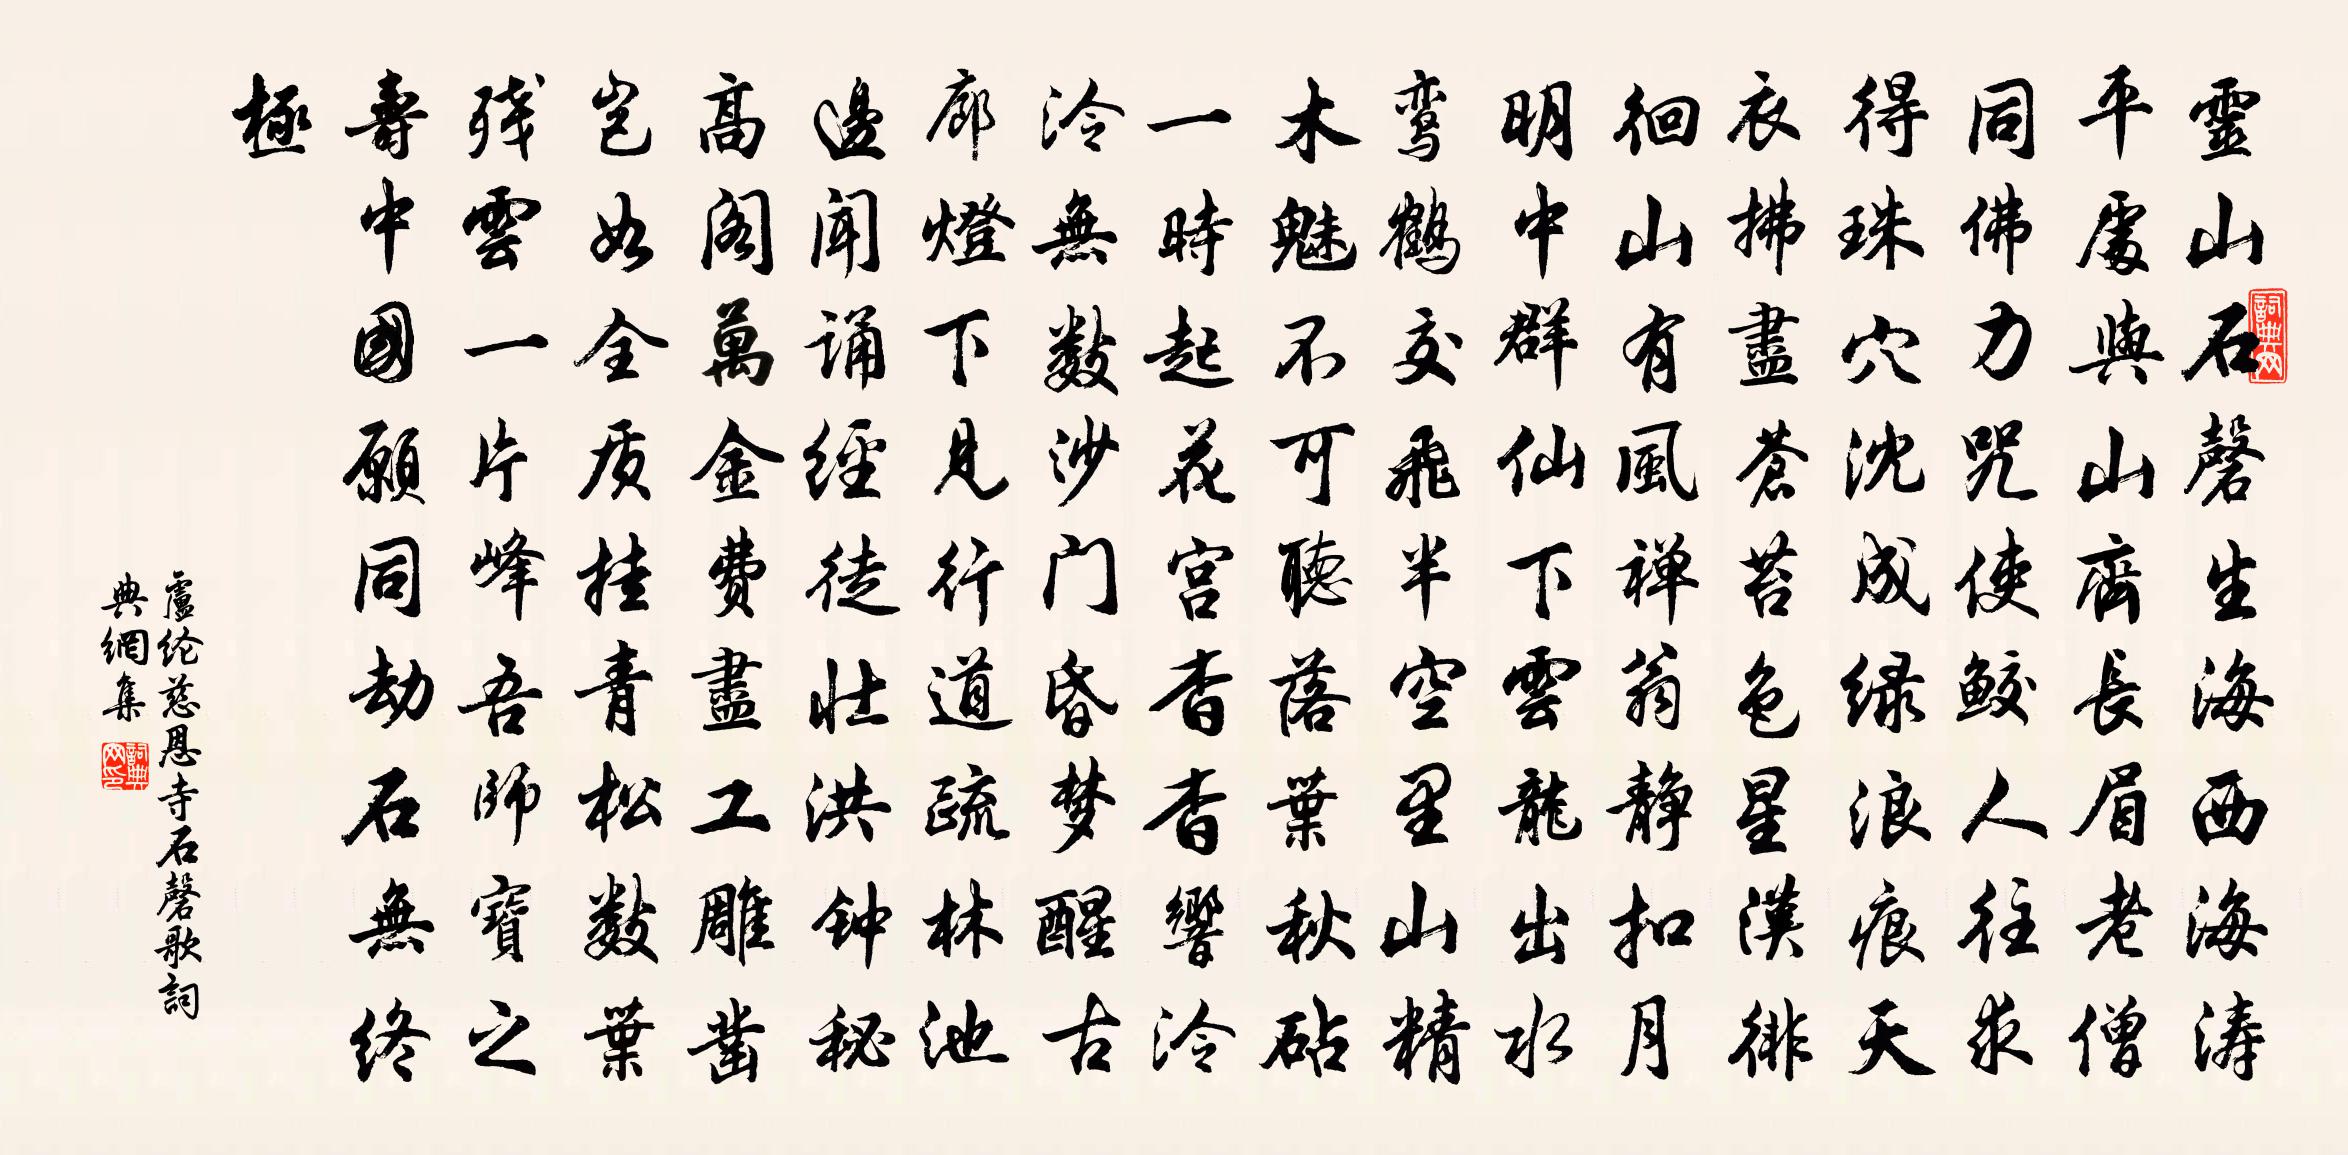 靈山石磬生海西海濤
平處與山齊長眉老僧
同佛力咒使鮫人往求
得珠穴沈成绿浪痕天
衣拂盡蒼苔色星漢徘
徊山有風禅翁静扣月
明中群仙下雲龍出水
鸾鶴交飛半空里山精
木魅不可聽落葉秋砧
一時起花宫杳杳響泠
泠無数沙门昏梦醒古
廊燈下見行道疏林池
邊闻诵經徒壮洪钟秘
高阁萬金費盡工雕凿
岂如全质挂青松数葉
残雲一片峰吾師寶之
壽中國願同劫石無终
極
盧纶慈恩寺石磬歌詞
典網集
詞典网
詞典网印